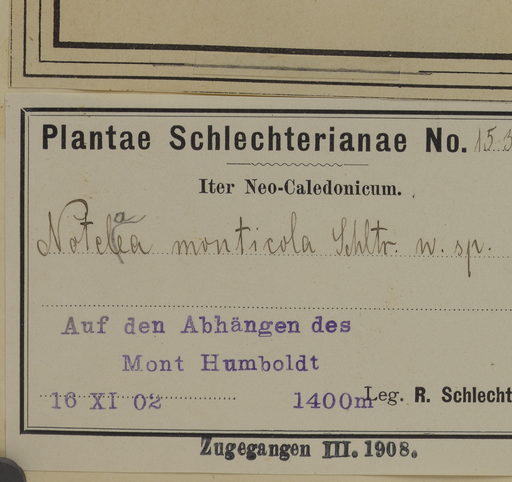 Plantae Schlechterianae No. 153
Iter Neo-Caledonicum.
Notelaea monticola Schltr. n. sp.
Auf den Abhängen des
Mont Humboldt
16 XI 02 1400m Leg. R. Schlecht
Zugegangen III. 1908.